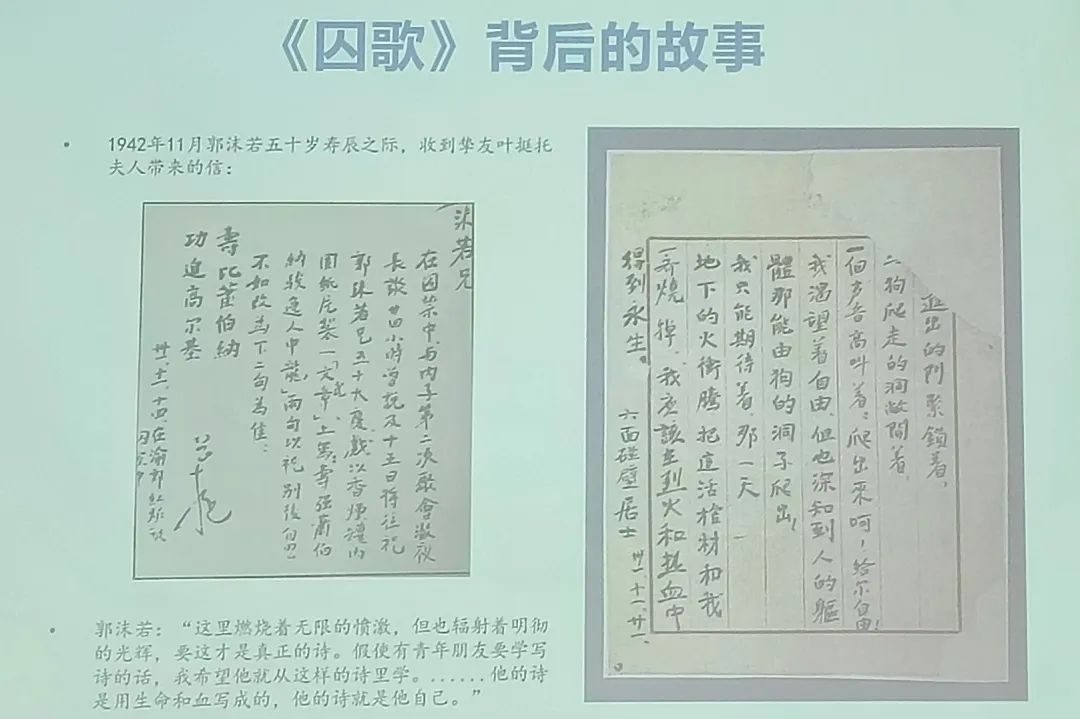 《囚歌》背后的故事
1942年11月郭沫若五十岁寿辰之际,收到挚友叶挺托
夫人带来的信:
沫若兄
在囚禁中,与内子第二次敘會澈夜
長談廿四小時曾説及十五日将往祝
郭沫若兄五十大慶、戲以香煙罐内
圓紙片製一「文章」,上寫「壽强蕭伯
納,駿逸人中龍」兩句以祝 別後自思
不如改為下二句為佳:
壽比蕭伯納
功追高尔基
卅、十一、十四、在渝郊
郭沫若:“这里燃烧着无限的愤激,但也辐射着明彻
的光辉,要这才是真正的诗。假使有青年朋友要学写
诗的话,我希望他就从这样的诗里学。......他的诗
是用生命和血写成的,他的诗就是他自己。”
進出的門緊鎖着,
狗爬走的洞敞開着,
一個声音高叫着:爬出來呵,給尔自由!
我渴望着自由,但也深知到人的軀
體那能由狗的洞子爬出!
我只能期待着,那一天
地下的火衝騰,把這活棺材和我
一齊燒掉,我應該在烈火和熱血中
得到永生。
六面碰壁居士 卅一、十一、廿一